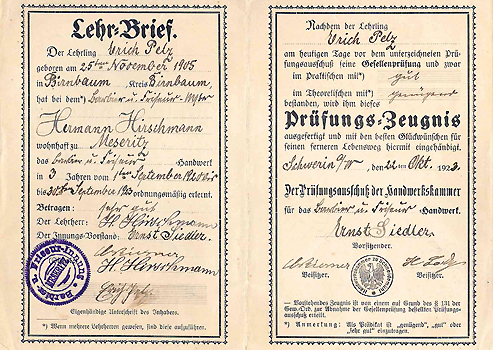 Lehr-Brief.
Der Lehrling Erich Pelz
geboren am 25ten November 1905
in Birnbaum, Kreis Birnbaum,
hat bei dem*) Barbier u. Friseur-Mstr
Hermann Hirschmann
wohnhaft zu Meseritz
das Barbier u. Friseur Handwerk
in 3 Jahren vom 1ten September 1920 bis
bis 30ten September 1923 ordnungsmäßig erlernt.
Betragen: sehr gut
Der Lehrherr: H. Hirschmann
Der Innungs-Vorstand: Ernst Siedler.
H. Hirschmann
Eigenhändige Unterschrift des Inhabers.
*) Wenn mehrere Lehrherren gewesen, sind diese aufzuführen.
Barbier u. Friseur-Innung
MESERITZ
Nachdem der Lehrling
Erich Pelz
am heutigen Tage vor dem unterzeichneten Prü-
fungsausschuß seine Gesellenprüfung und zwar
im Praktischen mit*) gut
im Theoretischen mit*) genügend
bestanden, wird ihm dieses
Prüfungs-Zeugnis
ausgefertigt und mit den besten Glückwünschen für
seinen ferneren Lebensweg hiermit eingehändigt.
Schwerin a/W, den Okt. 1923.
Der Prüfungsausschuß der Handwerkskammer
für das Barbier u. Friseur-Handwerk.
Ernst Siedler
Vorsitzender.
Beisitzer. Beisitzer.
— Vorstehendes Zeugnis ist von einem auf Grund des § 131 der
Gew.-Ord. zur Abnahme der Gesellenprüfung bestellten Prüfungs-
ausschuß erteilt.
*) Anmerkung: Als Prädikat ist "genügend", "gut" oder
"sehr gut" einzutragen.